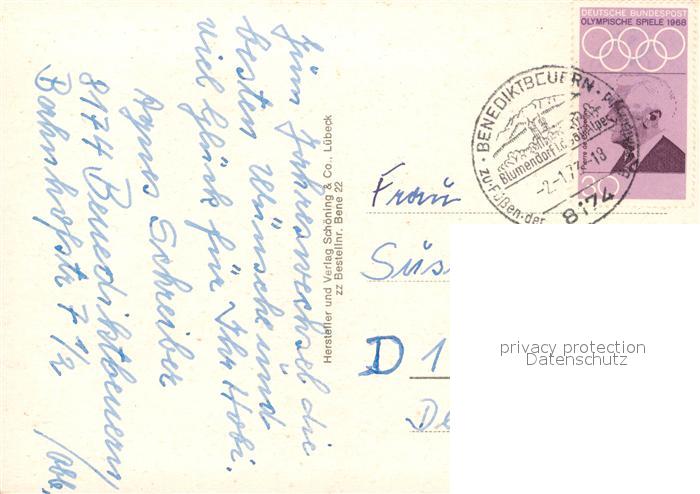 Zum Jahreswechsel die
besten Wünsche und
viel Glück für Ihr Hobi.
Agnes Schreiber
8174 Benediktbeuern/
Bahnhofstr 7 1/2 /Obb.
Hersteller und Verlag Schöning & Co., Lübeck
zz Bestellnr. Bene 22
DEUTSCHE BUNDESPOST
OLYMPISCHE SPIELE 1968
30
BENEDIKTBEUERN
Blumendorf
zu-Füßen-der
8174
Frau
Süs
D 1
privacy protection
Datenschutz